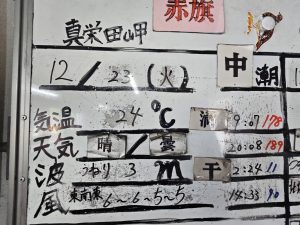 赤旗
真栄田岬
12/23(火) 中潮
気温 24℃ 満 9:07 178
天気 晴/曇 20:08 189
波 うねり 3m 干 2:24 11
風 東南東 6~6~5~5 14:33 90